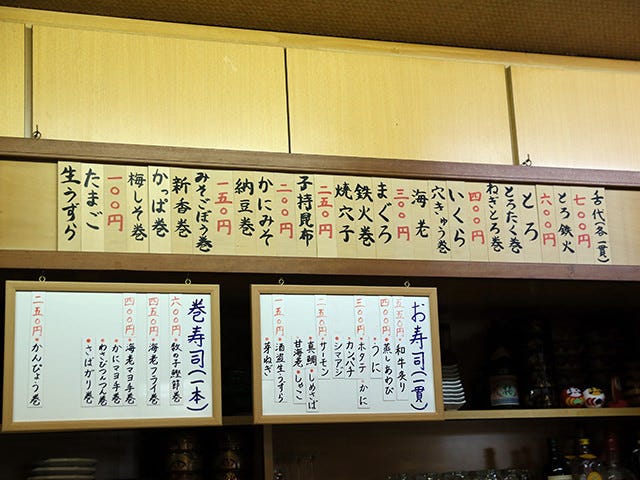 舌代(各一貫)
七〇〇円
とろ鉄火
六〇〇円
とろ
とろたく巻
ねぎとろ巻
四〇〇円
いくら
穴きゅう巻
海老
三〇〇円
まぐろ
鉄火巻
焼穴子
二五〇円
子持昆布
二〇〇円
かにみそ
納豆巻
一五〇円
みそごぼう巻
新香巻
かっぱ巻
梅しそ巻
一〇〇円
たまご
生うずら
お寿司(一貫)
五五〇円
和牛炙り
四〇〇円
蒸しあわび
うに
三〇〇円
ホタテ
かに
カンパチ
シマアジ
二五〇円
サーモン
真鯛
しめさば
甘海老
しゃこ
一五〇円
酒盗生うずら
芽ねぎ
巻寿司(一本)
六〇〇円
数の子鰹節巻
四五〇円
海老フライ巻
四〇〇円
海老マヨ巻
かにマヨ手巻
わさびツナ巻
さばガリ巻
二五〇円
かんぴょう巻